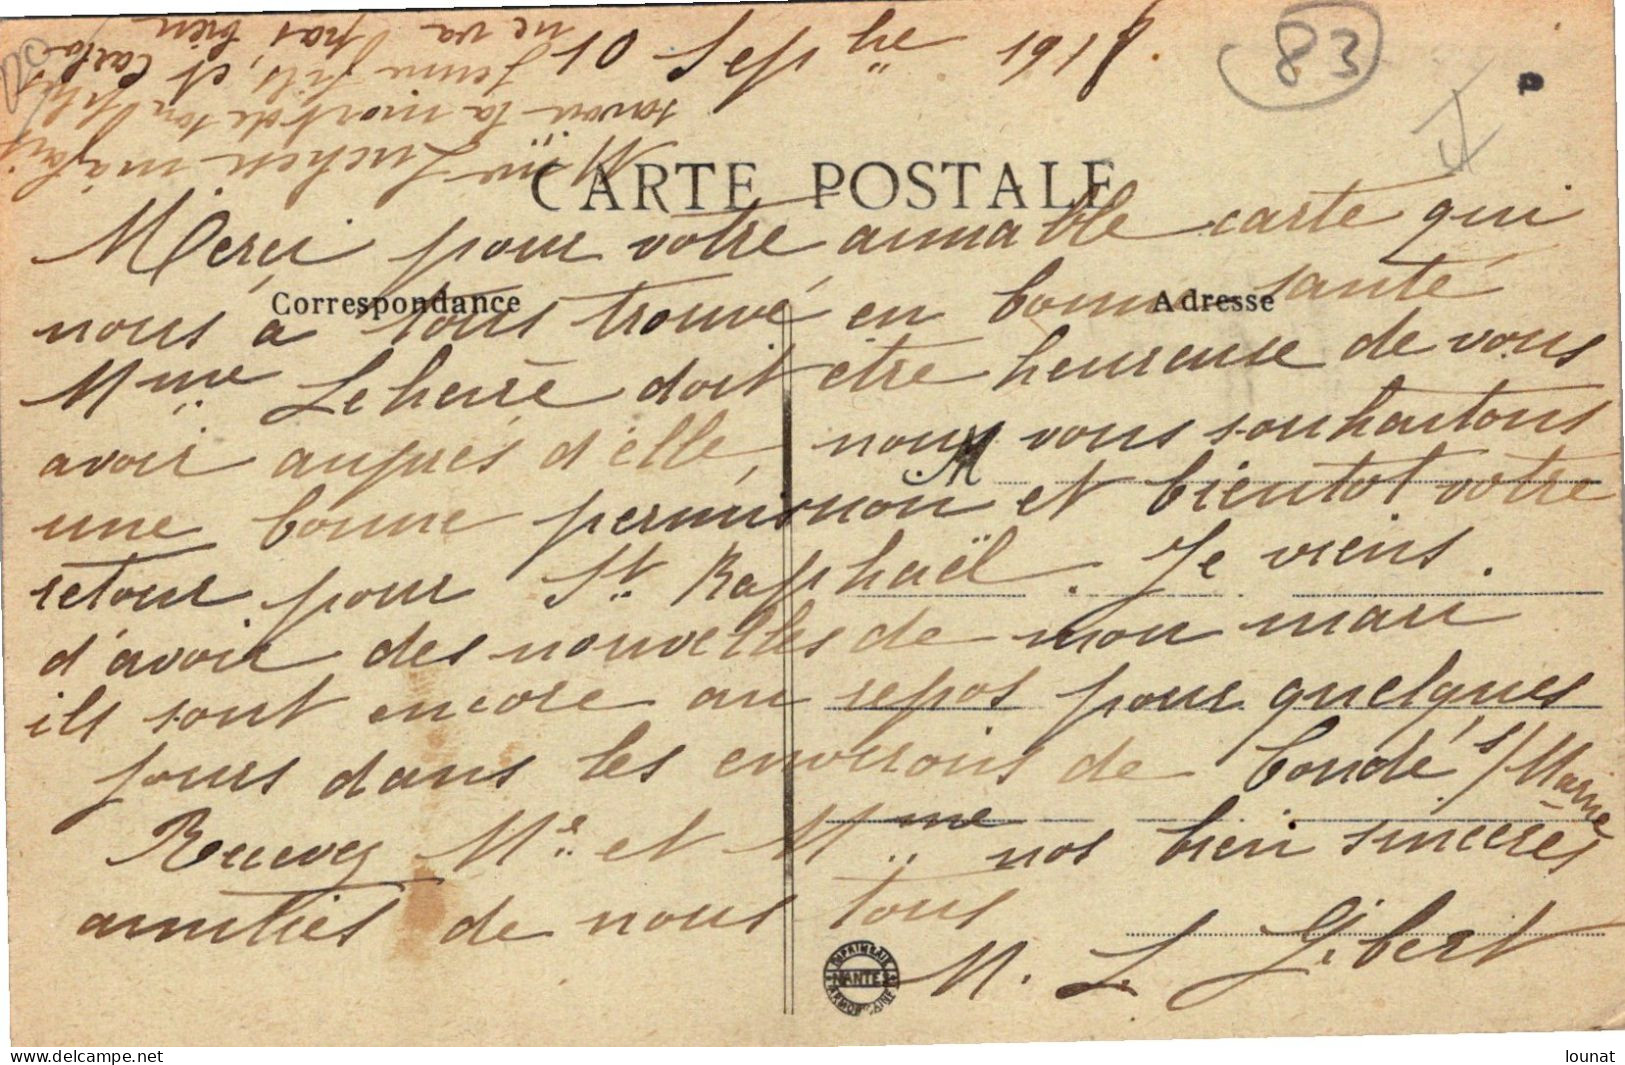 10 Septbre 1918
Mme Luchen m'a fait
savoir la mort de son plus
jeune fils, et Carlo
ne va pas bien
83
CARTE POSTALE
Merci pour votre aimable carte qui
Correspondance
Adresse
nous a tous trouvé en bonne santé
Mme Leherré doit être heureuse de vous
avoir auprés d'elle, nous vous souhaitons
M
une bonne permission et bientot votre
retour pour St. Raphaël. Je viens
d'avoir des nouvelles de mon mari
ils sont encore au repos pour quelques
jours dans les environs de Condé s/Marne
Recevez Mr. et Mme nos bien sincères
amitiés de nous tous
M. L. Gibert
IMPRIMERIE
NANTES
ARMORICAINE
delcampe.net
lounat